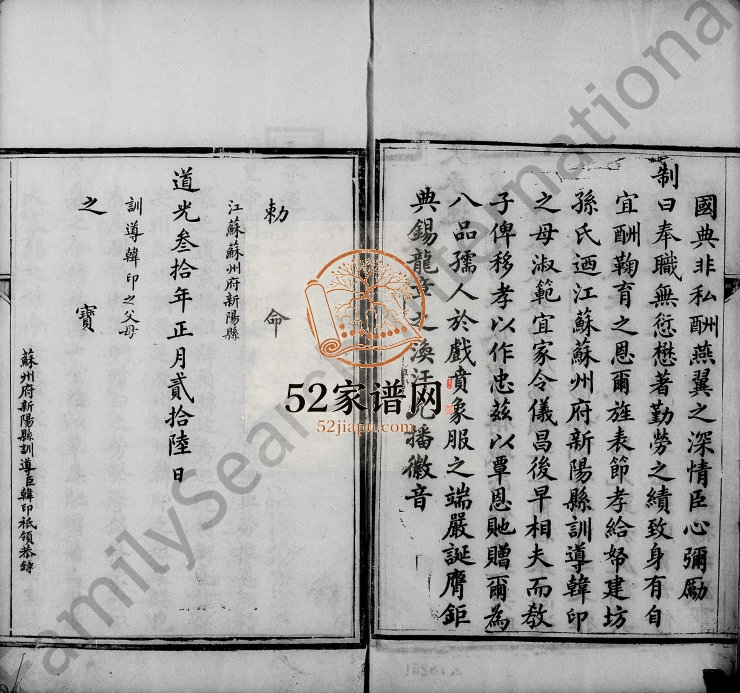 國典非私酬燕翼之深情臣心彌勵
制曰奉職無愆懋著勤勞之績致身有自
宜酬鞠育之恩爾旌表節孝給帑建坊
孫氏迺江蘇蘇州府新陽縣訓導韓印
之母淑範宜家令儀昌後早相夫而教
子俾移孝以作忠茲以覃恩貤贈爾為
八品孺人於戲賁象服之端嚴誕膺鉅
典錫龍章之渙汗永播徽音
勅命
江蘇蘇州府新陽縣
道光叁拾年正月貳拾陸日
訓導韓印之父母
之寶
蘇州府新陽縣訓導臣韓印祗領恭錄
52家谱网
52jiapu.com
FamilySearch International